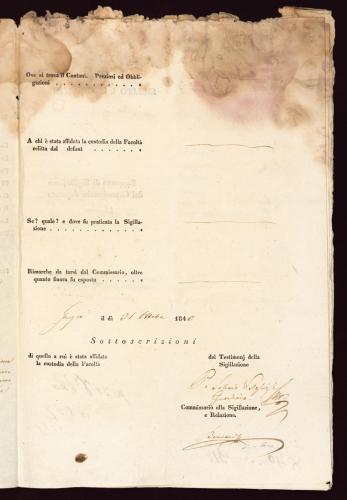 Ove si trova il Contant. Preziosi ed Obbli-
gazioni . . . . . . . . . . . .
A chi è stata affidata la custodia della Facoltà
relitta dal defont . . . . . . .
Se? quale? e dove fu praticata la Sigilla-
zione . . . . . . . . . . . . .
Rimarche da farsi dal Commissario, oltre
quanto finora fu esposto . . . . . .
il dì 31 184
Sottoscrizioni
di quello a cui è stata affidata
la custodia della Facoltà
dei Testimonj della
Sigillazione
Commissario alla Sigillazione,
e Relazione.